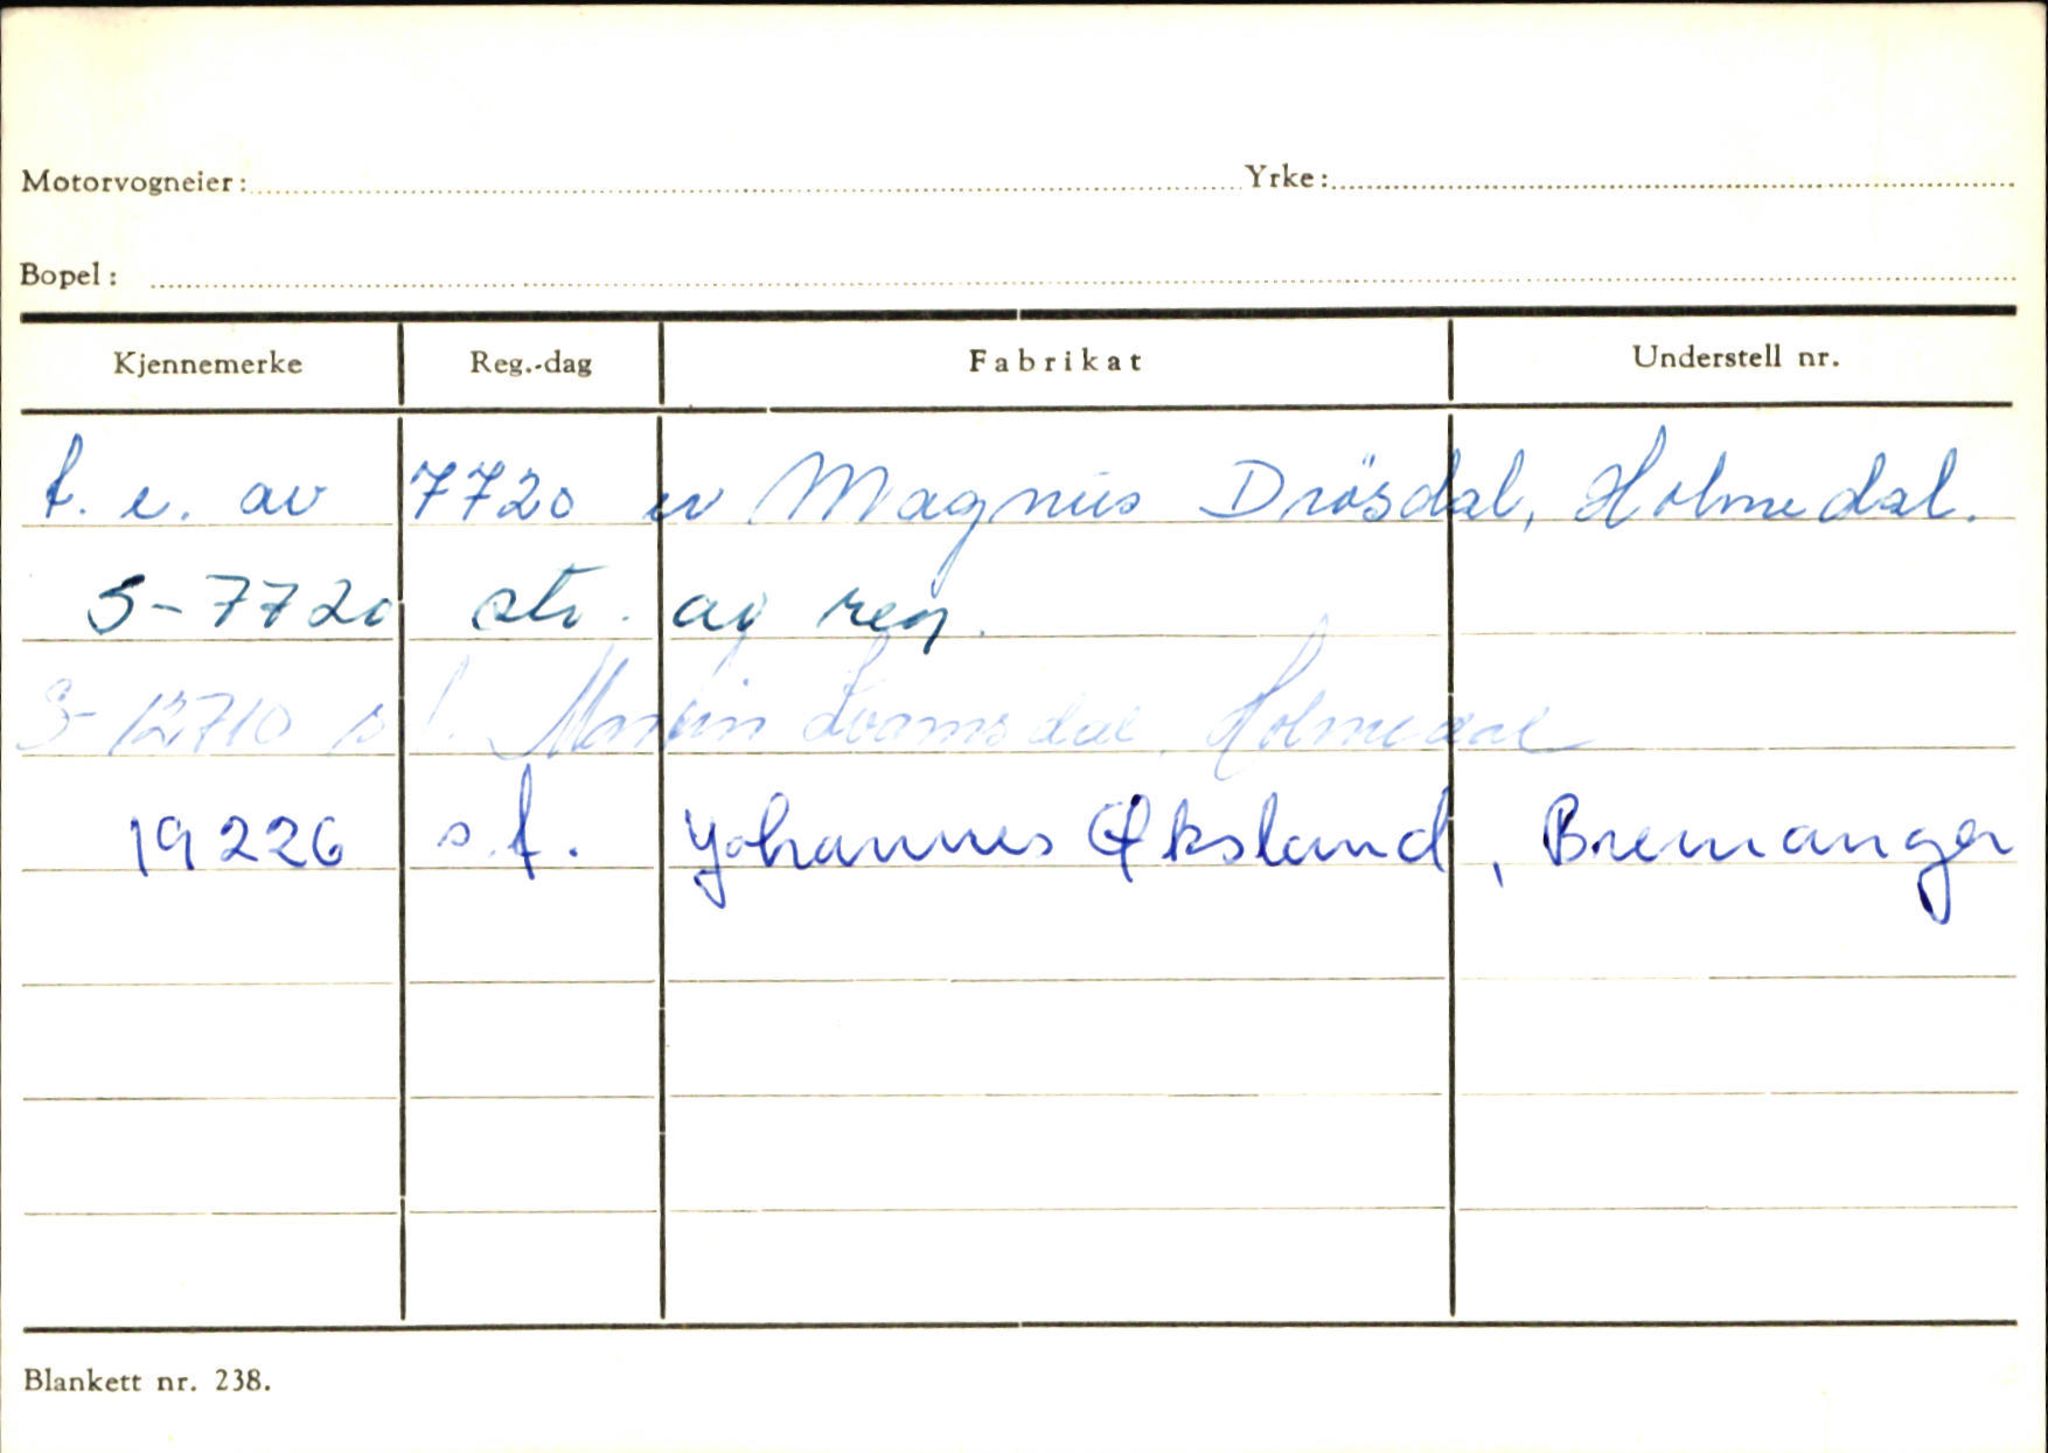 Motorvogneier: Yrke:
Bopel:
Kjennemerke Reg.-dag Fabrikat Understell nr.
f. e. av 7720 er Magnus Drösdal, Holmedal.
S-7720 str. av reg.
S-12710 s.f. Martin Kvamsdal, Holmedal
19226 s.f. Johannes Øksland, Bremanger
Blankett nr. 238.